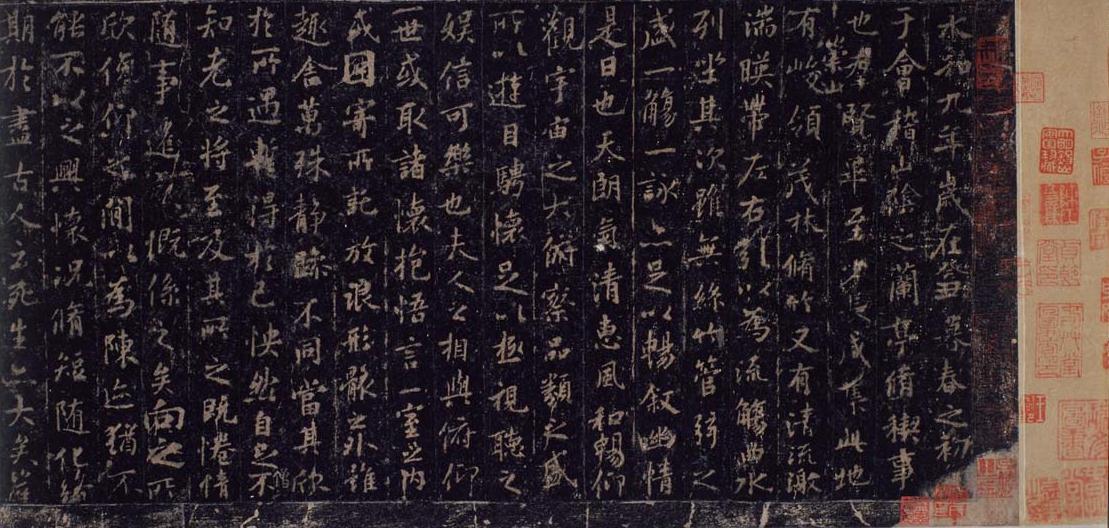 永和九年歲在癸丑暮春之初
于會稽山陰之蘭亭脩禊事
也羣賢畢至少長咸集此地
有崇山峻領茂林脩竹又有清流激
湍暎帶左右引以為流觴曲水
列坐其次雖無絲竹管弦之
盛一觴一詠亦足以暢叙幽情
是日也天朗氣清惠風和暢仰
觀宇宙之大俯察品類之盛
所以遊目騁懷足以極視聽之
娛信可樂也夫人之相與俯仰
一世或取諸懷抱悟言一室之內
或因寄所託放浪形骸之外雖
趣舍萬殊靜躁不同當其欣
於所遇暫得於己怏然自足不
僧
知老之將至及其所之既惓情
隨事遷感慨係之矣向之所
欣俛仰之間以為陳迹猶不
能不以之興懷況脩短隨化終
期於盡古人云死生亦大矣豈